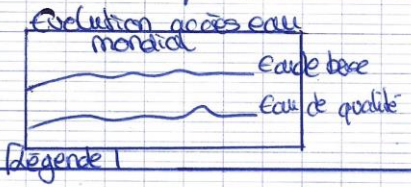 Evolution accès eau
mondial
Eau de base
Eau de qualité
Légende 1